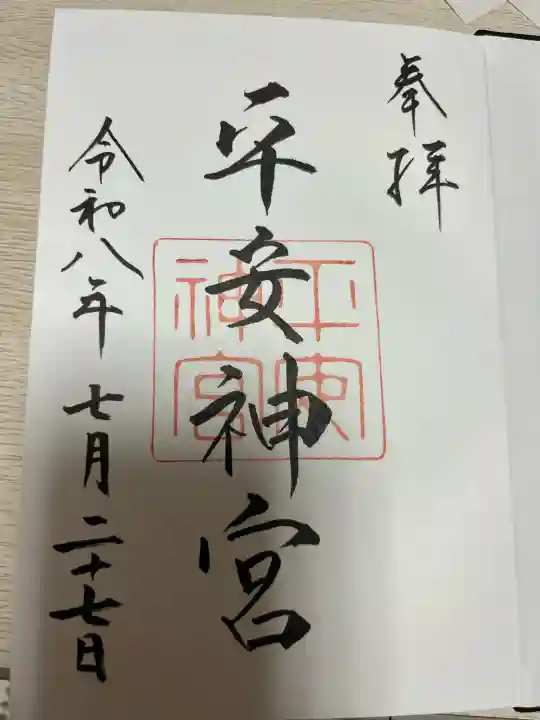 奉拝
平安神宮
平安神宮
令和八年七月二十七日